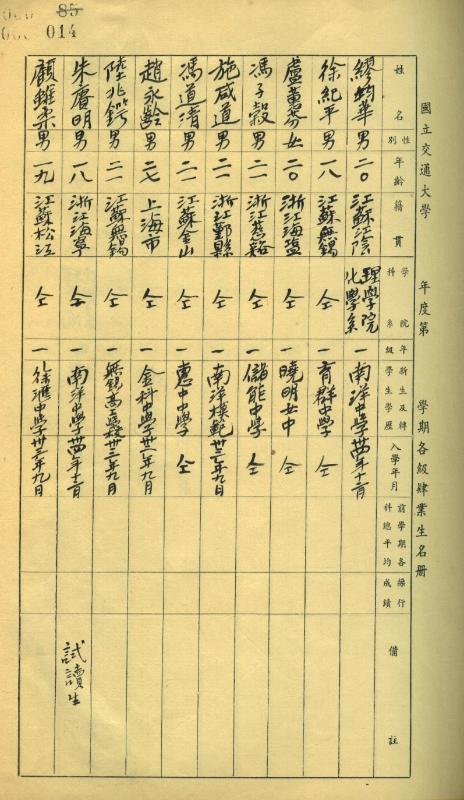 85
014
國立交通大學 年度第 學期各級肄業生名册
姓名 性別 年齡 籍貫 學院科系 年級 新生及轉學生學歷 入學年月 前學期各科總平均 操行成績 備註
繆鈞華 男 二〇 江蘇江陰 理學院化學系 一 南洋中學 卅四年十一月
徐紀平 男 一八 江蘇無錫 仝 一 育群中學 仝
盧菊芬 女 二〇 浙江海鹽 仝 一 曉明女中 仝
馮子穀 男 二一 浙江慈谿 仝 一 儲能中學 仝
施咸道 男 二一 浙江鄞縣 仝 一 南洋模範 卅三年九月
馮道清 男 二一 江蘇金山 仝 一 惠中中學 仝
趙永齡 男 二七 上海市 仝 一 金科中學 卅一年九月
陸兆鍔 男 二一 江蘇無錫 仝 一 無錫高工 卅三年九月
朱賡明 男 一八 浙江海寧 仝 一 南洋中學 卅四年十一月 試讀生
顧鍾柔 男 一九 江蘇松江 仝 一 徐滙中學 卅三年九月